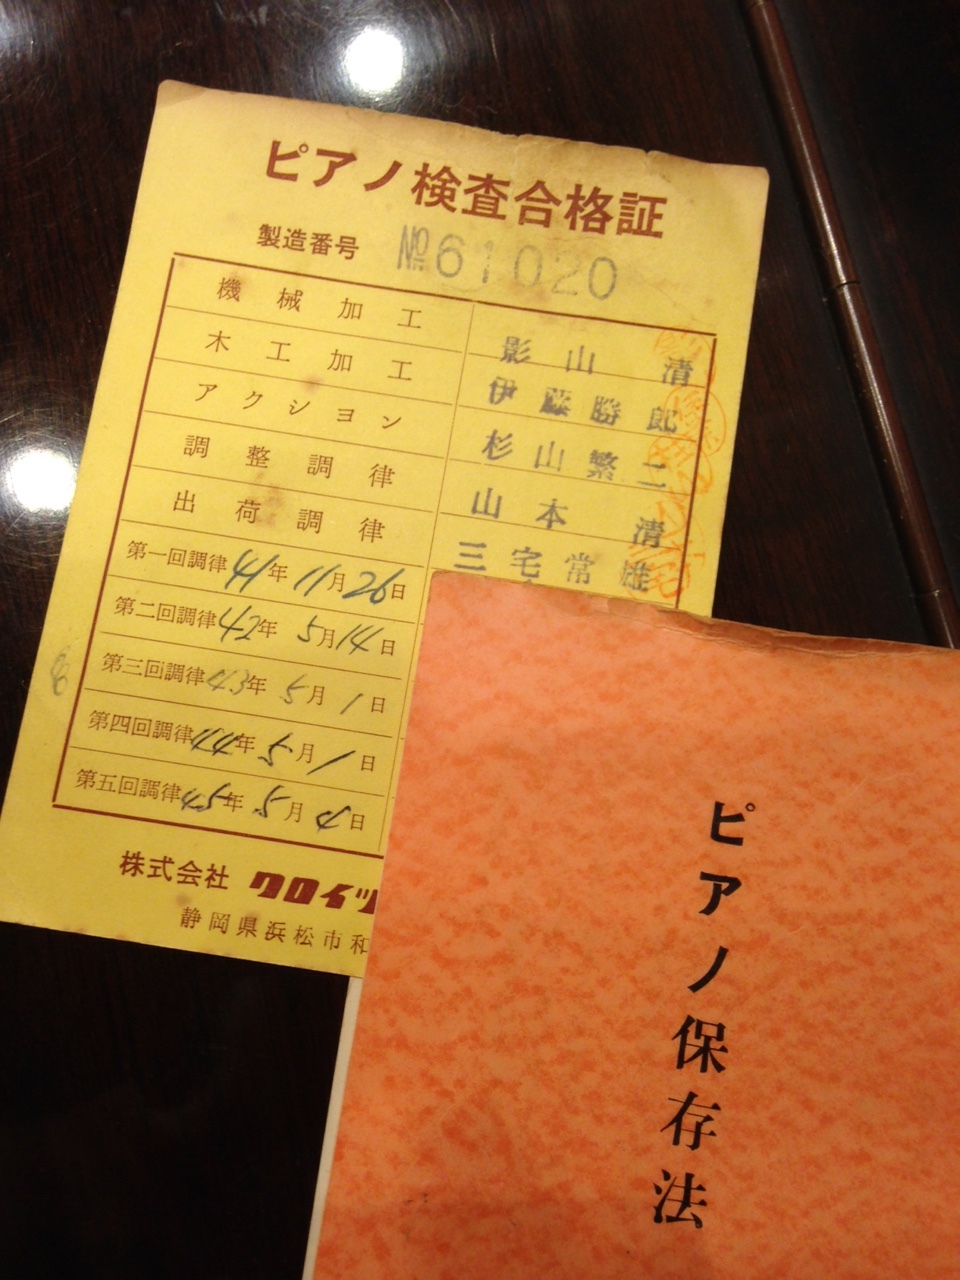 ピアノ検査合格証
製造番号 №61020
機械加工 影山 清
木工加工 伊藤勝郎
アクション 杉山繁二
調整調律 山本 清
出荷調律 三宅常雄
第一回調律41年11月26日
第二回調律42年5月14日
第三回調律43年5月1日
第四回調律44年5月1日
第五回調律 年5月 日
株式会社 クロイツ
静岡県浜松市和
ピアノ保存法